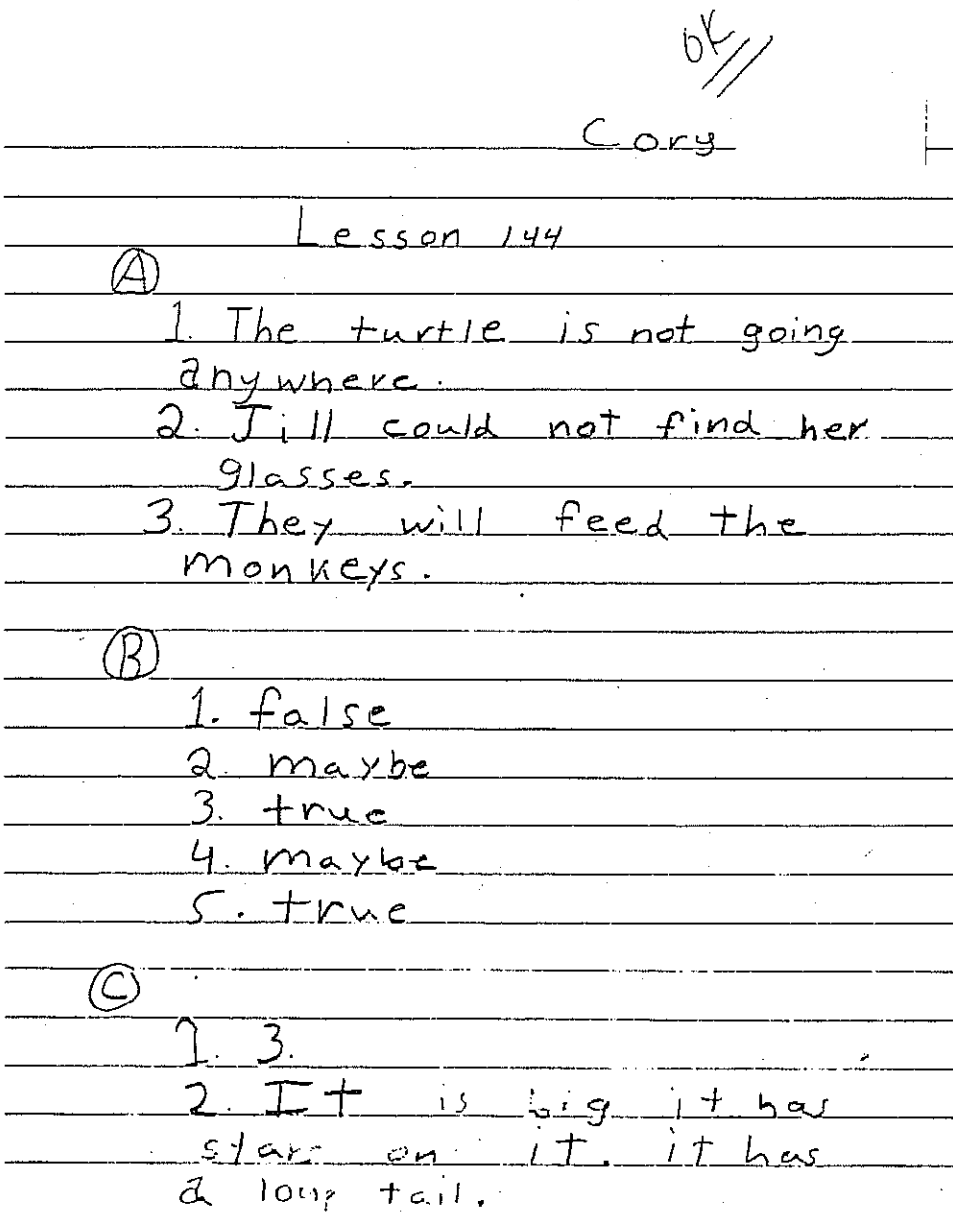 OK
Cory
Lesson 144
A
1. The turtle is not going
anywhere.
2. Jill could not find her
glasses.
3. They will feed the
monkeys.
B
1. false
2. maybe
3. true
4. maybe
5. true
C
1. 3.
2. It is big it has
stars on it. it has
a long tail.